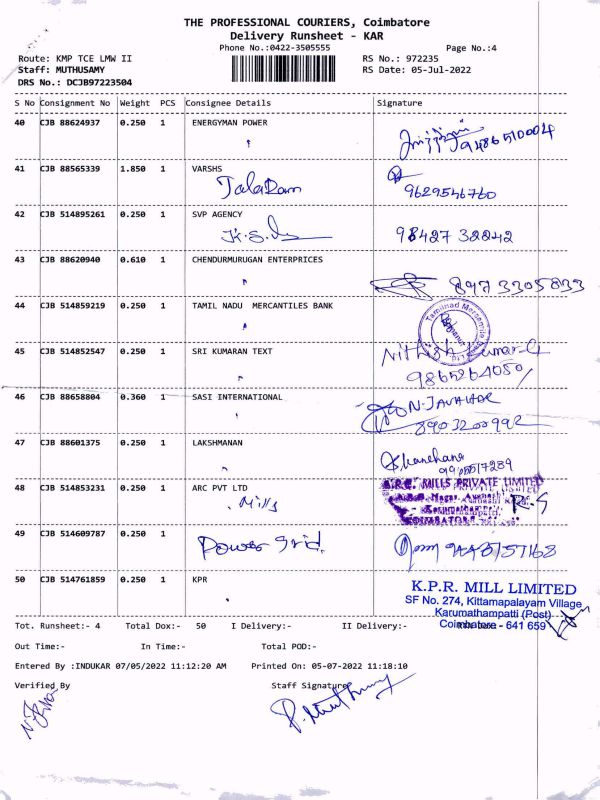 THE PROFESSIONAL COURIERS, Coimbatore
Delivery Runsheet - KAR
Phone No.:0422-3505555
Page No.:4
Route: KMP TCE LMW II
RS No.: 972235
Staff: MUTHUSAMY
RS Date: 05-Jul-2022
DRS No.: DCJB97223504
S No Consignment No Weight PCS Consignee Details Signature
40 CJB 88624937 0.250 1 ENERGYMAN POWER
9486510004
41 CJB 88565339 1.850 1 VARSHS
TalaRam 9629546760
42 CJB 514895261 0.250 1 SVP AGENCY
98427 32242
43 CJB 88620940 0.610 1 CHENDURMURUGAN ENTERPRICES
8973305833
44 CJB 514859219 0.250 1 TAMIL NADU MERCANTILES BANK
45 CJB 514852547 0.250 1 SRI KUMARAN TEXT
Nithish Kumar-G
9865264050
46 CJB 88658804 0.360 1 SASI INTERNATIONAL
N-JAVAHAR
8903200992
47 CJB 88601375 0.250 1 LAKSHMANAN
48 CJB 514853231 0.250 1 ARC PVT LTD
Mills
MILLS PRIVATE LIMITED
R.S
49 CJB 514609787 0.250 1
Power grid.
50 CJB 514761859 0.250 1 KPR
K.P.R. MILL LIMITED
SF No. 274, Kittamapalayam Village
Karumathampatti (Post)
Coimbatore - 641 659
Tot. Runsheet:- 4 Total Dox:- 50 I Delivery:- II Delivery:-
Out Time:- In Time:- Total POD:-
Entered By :INDUKAR 07/05/2022 11:12:20 AM Printed On: 05-07-2022 11:18:10
Verified By Staff Signature
P. Muthusamy